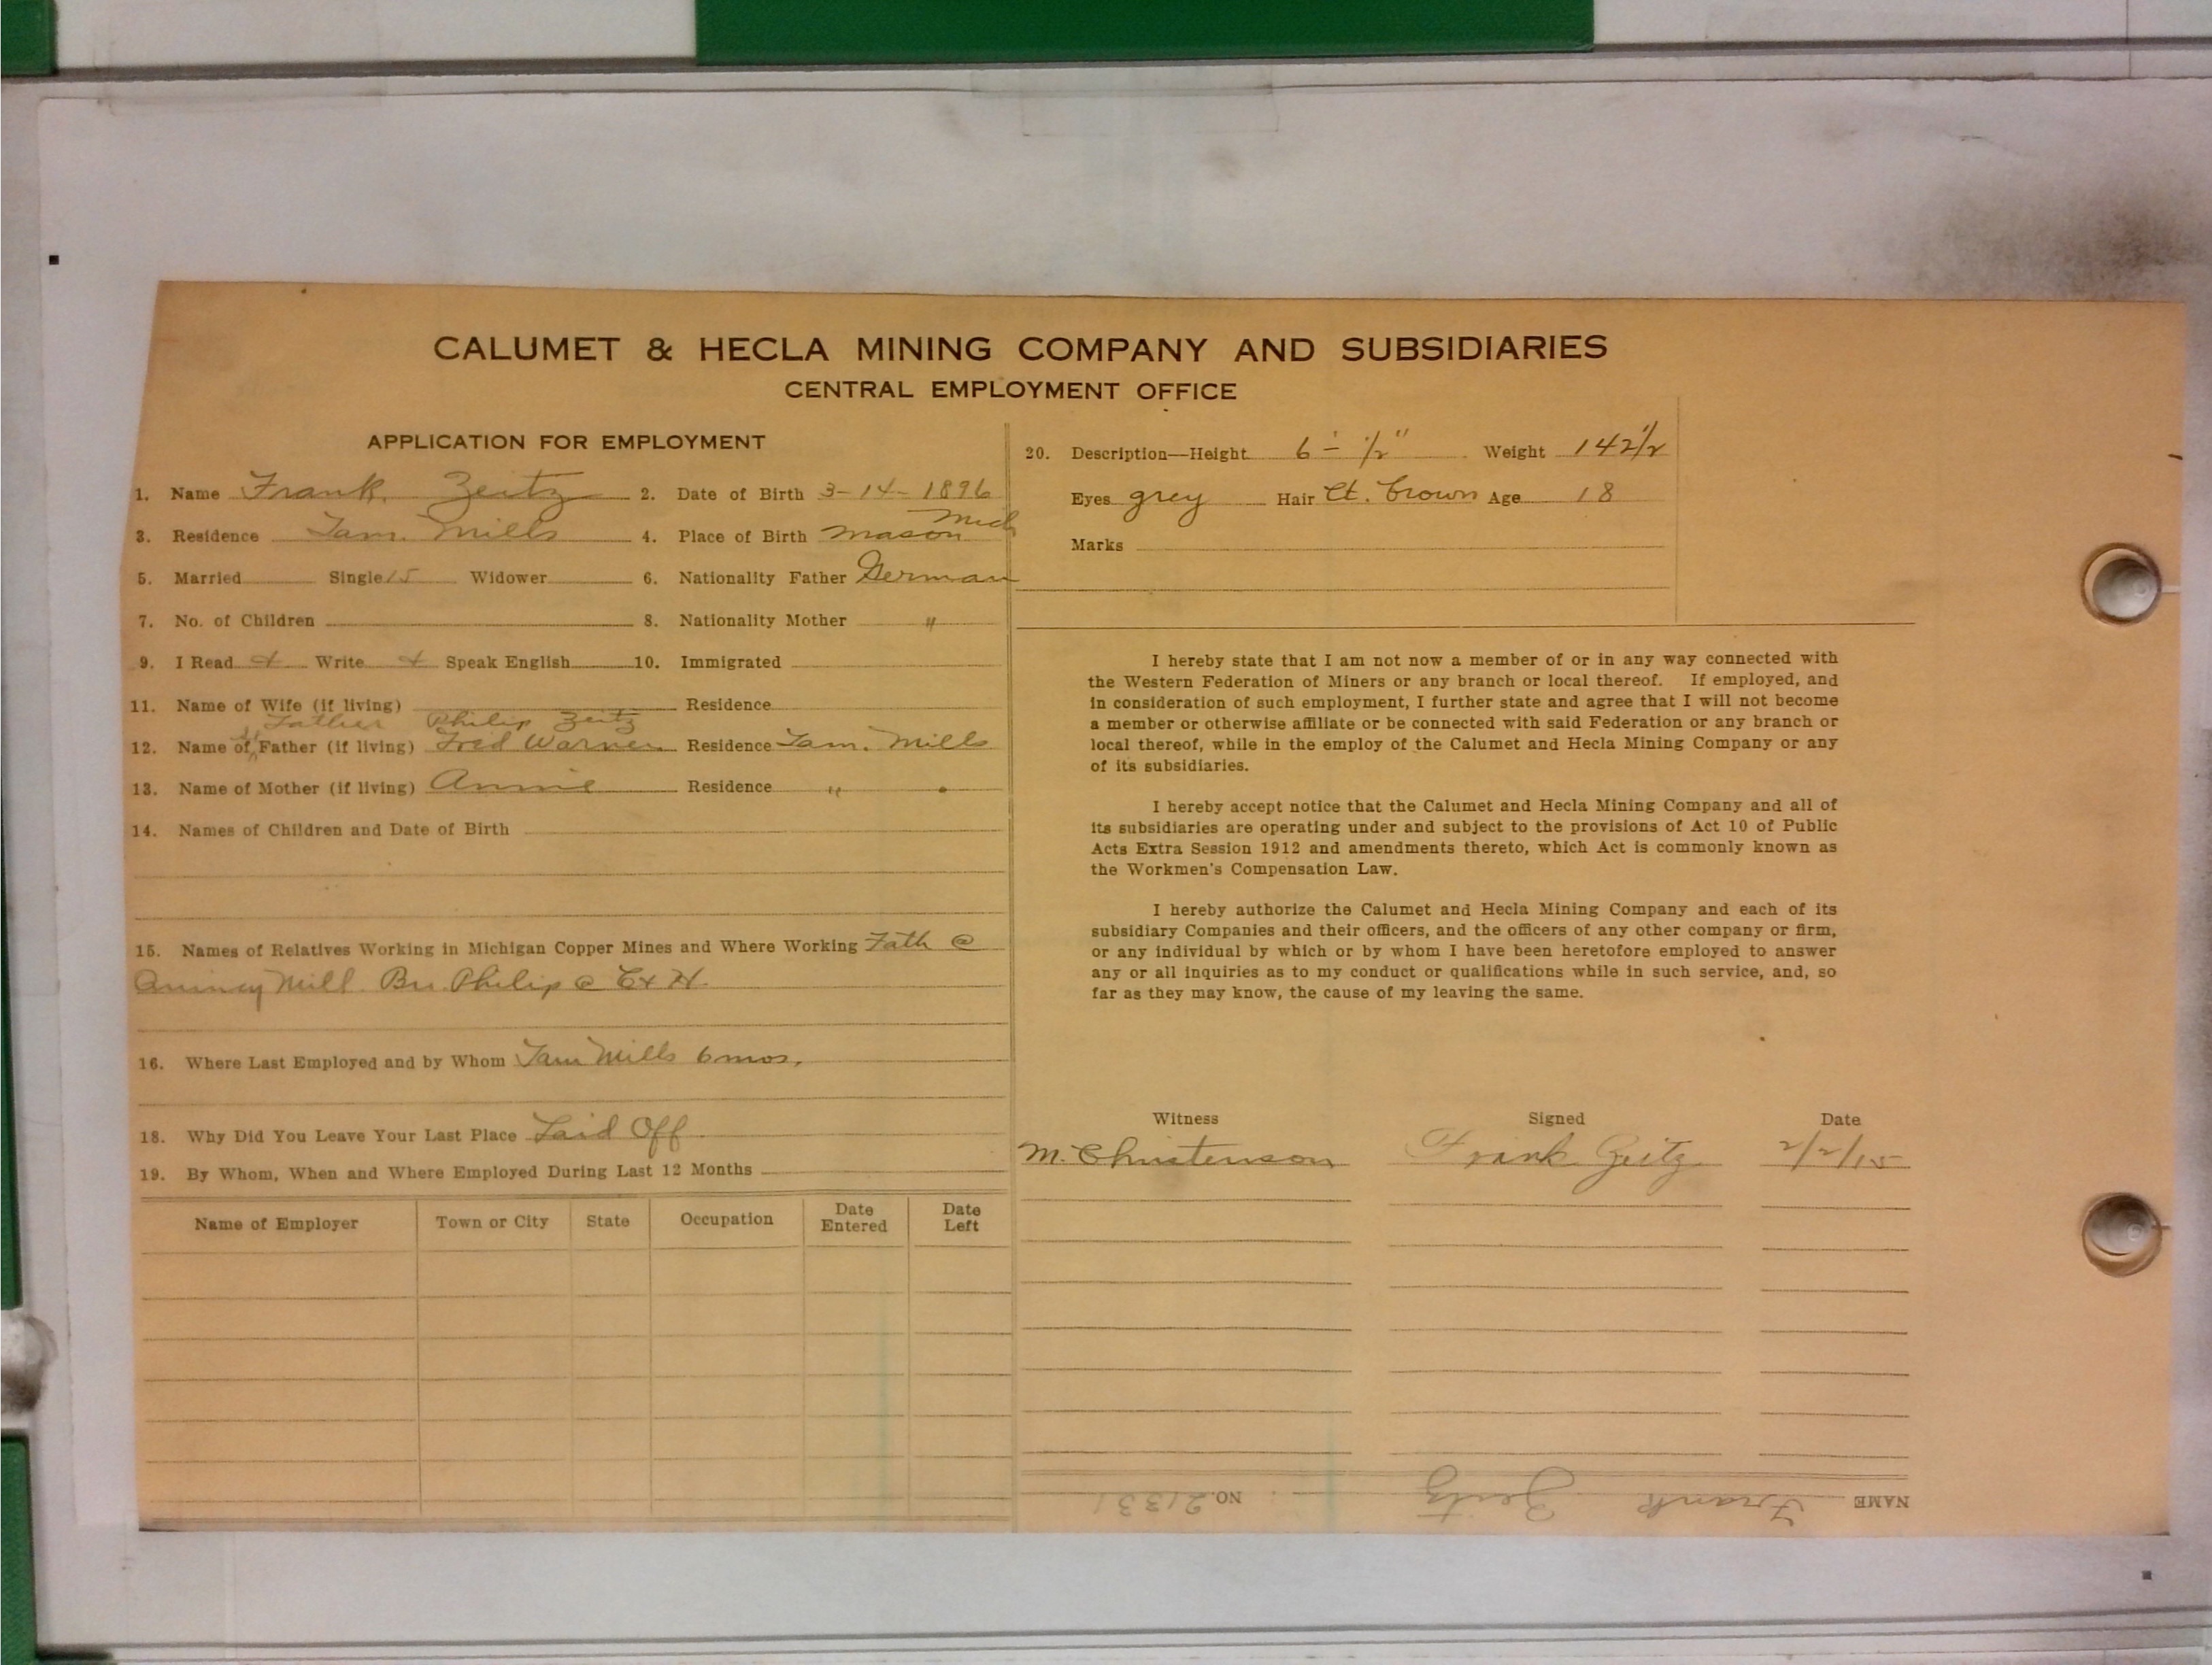 CALUMET & HECLA MINING COMPANY AND SUBSIDIARIES
CENTRAL EMPLOYMENT OFFICE
APPLICATION FOR EMPLOYMENT
1. Name Frank Zeitz 2. Date of Birth 3-14-1896
3. Residence Tam. Mills 4. Place of Birth Mason Mich
5. Married Single 15 Widower 6. Nationality Father German
7. No. of Children 8. Nationality Mother "
9. I Read + Write + Speak English 10. Immigrated
11. Name of Wife (if living) Residence
Father Philip Zeitz
12. Name of Father (if living) Fred Warner Residence Tam. Mills
13. Name of Mother (if living) Annie Residence " "
14. Names of Children and Date of Birth
15. Names of Relatives Working in Michigan Copper Mines and Where Working Fath @
Quincy Mill Bro. Philip @ C & H.
16. Where Last Employed and by Whom Tam Mills 6 mos.
18. Why Did You Leave Your Last Place Laid Off
19. By Whom, When and Where Employed During Last 12 Months
Name of Employer Town or City State Occupation Date Entered Date Left
20. Description—Height 6'-1/2" Weight 142 1/2
Eyes grey Hair Lt. brown Age 18
Marks
I hereby state that I am not now a member of or in any way connected with
the Western Federation of Miners or any branch or local thereof. If employed, and
in consideration of such employment, I further state and agree that I will not become
a member or otherwise affiliate or be connected with said Federation or any branch or
local thereof, while in the employ of the Calumet and Hecla Mining Company or any
of its subsidiaries.
I hereby accept notice that the Calumet and Hecla Mining Company and all of
its subsidiaries are operating under and subject to the provisions of Act 10 of Public
Acts Extra Session 1912 and amendments thereto, which Act is commonly known as
the Workmen's Compensation Law.
I hereby authorize the Calumet and Hecla Mining Company and each of its
subsidiary Companies and their officers, and the officers of any other company or firm,
or any individual by which or by whom I have been heretofore employed to answer
any or all inquiries as to my conduct or qualifications while in such service, and, so
far as they may know, the cause of my leaving the same.
Witness Signed Date
M. Christenson Frank Zeitz 2/2/15
NAME Frank Zeitz NO. 21331